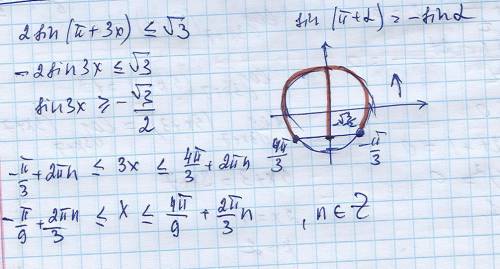 2sin(π+3x) ≤ √3
sin(π+α) = -sinα
-2sin3x ≤ √3
sin3x ≥ -√3/2
-√3/2
4π/3
-π/3
-π/3 + 2πn ≤ 3x ≤ 4π/3 + 2πn
-π/9 + 2πn/3 ≤ x ≤ 4π/9 + 2π/3 n , n ∈ Z